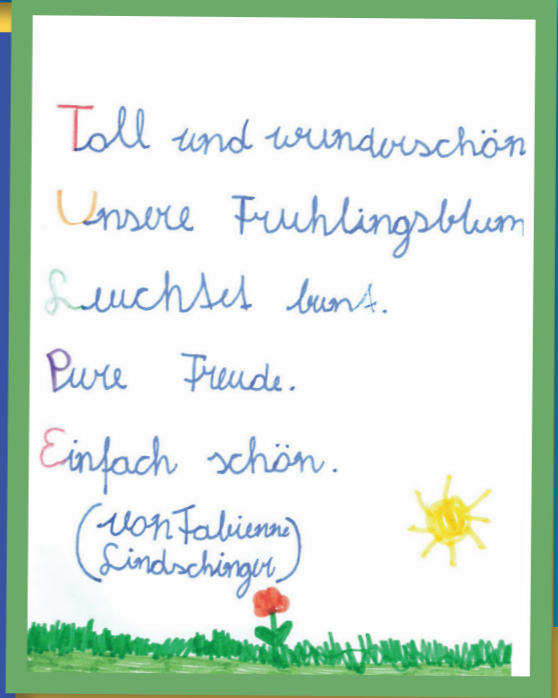 Toll und wunderschön
Unsere Fruhlingsblum
Leuchtet bunt.
Pure Freude.
Einfach schön.
(von Fabienne
Lindschinger)